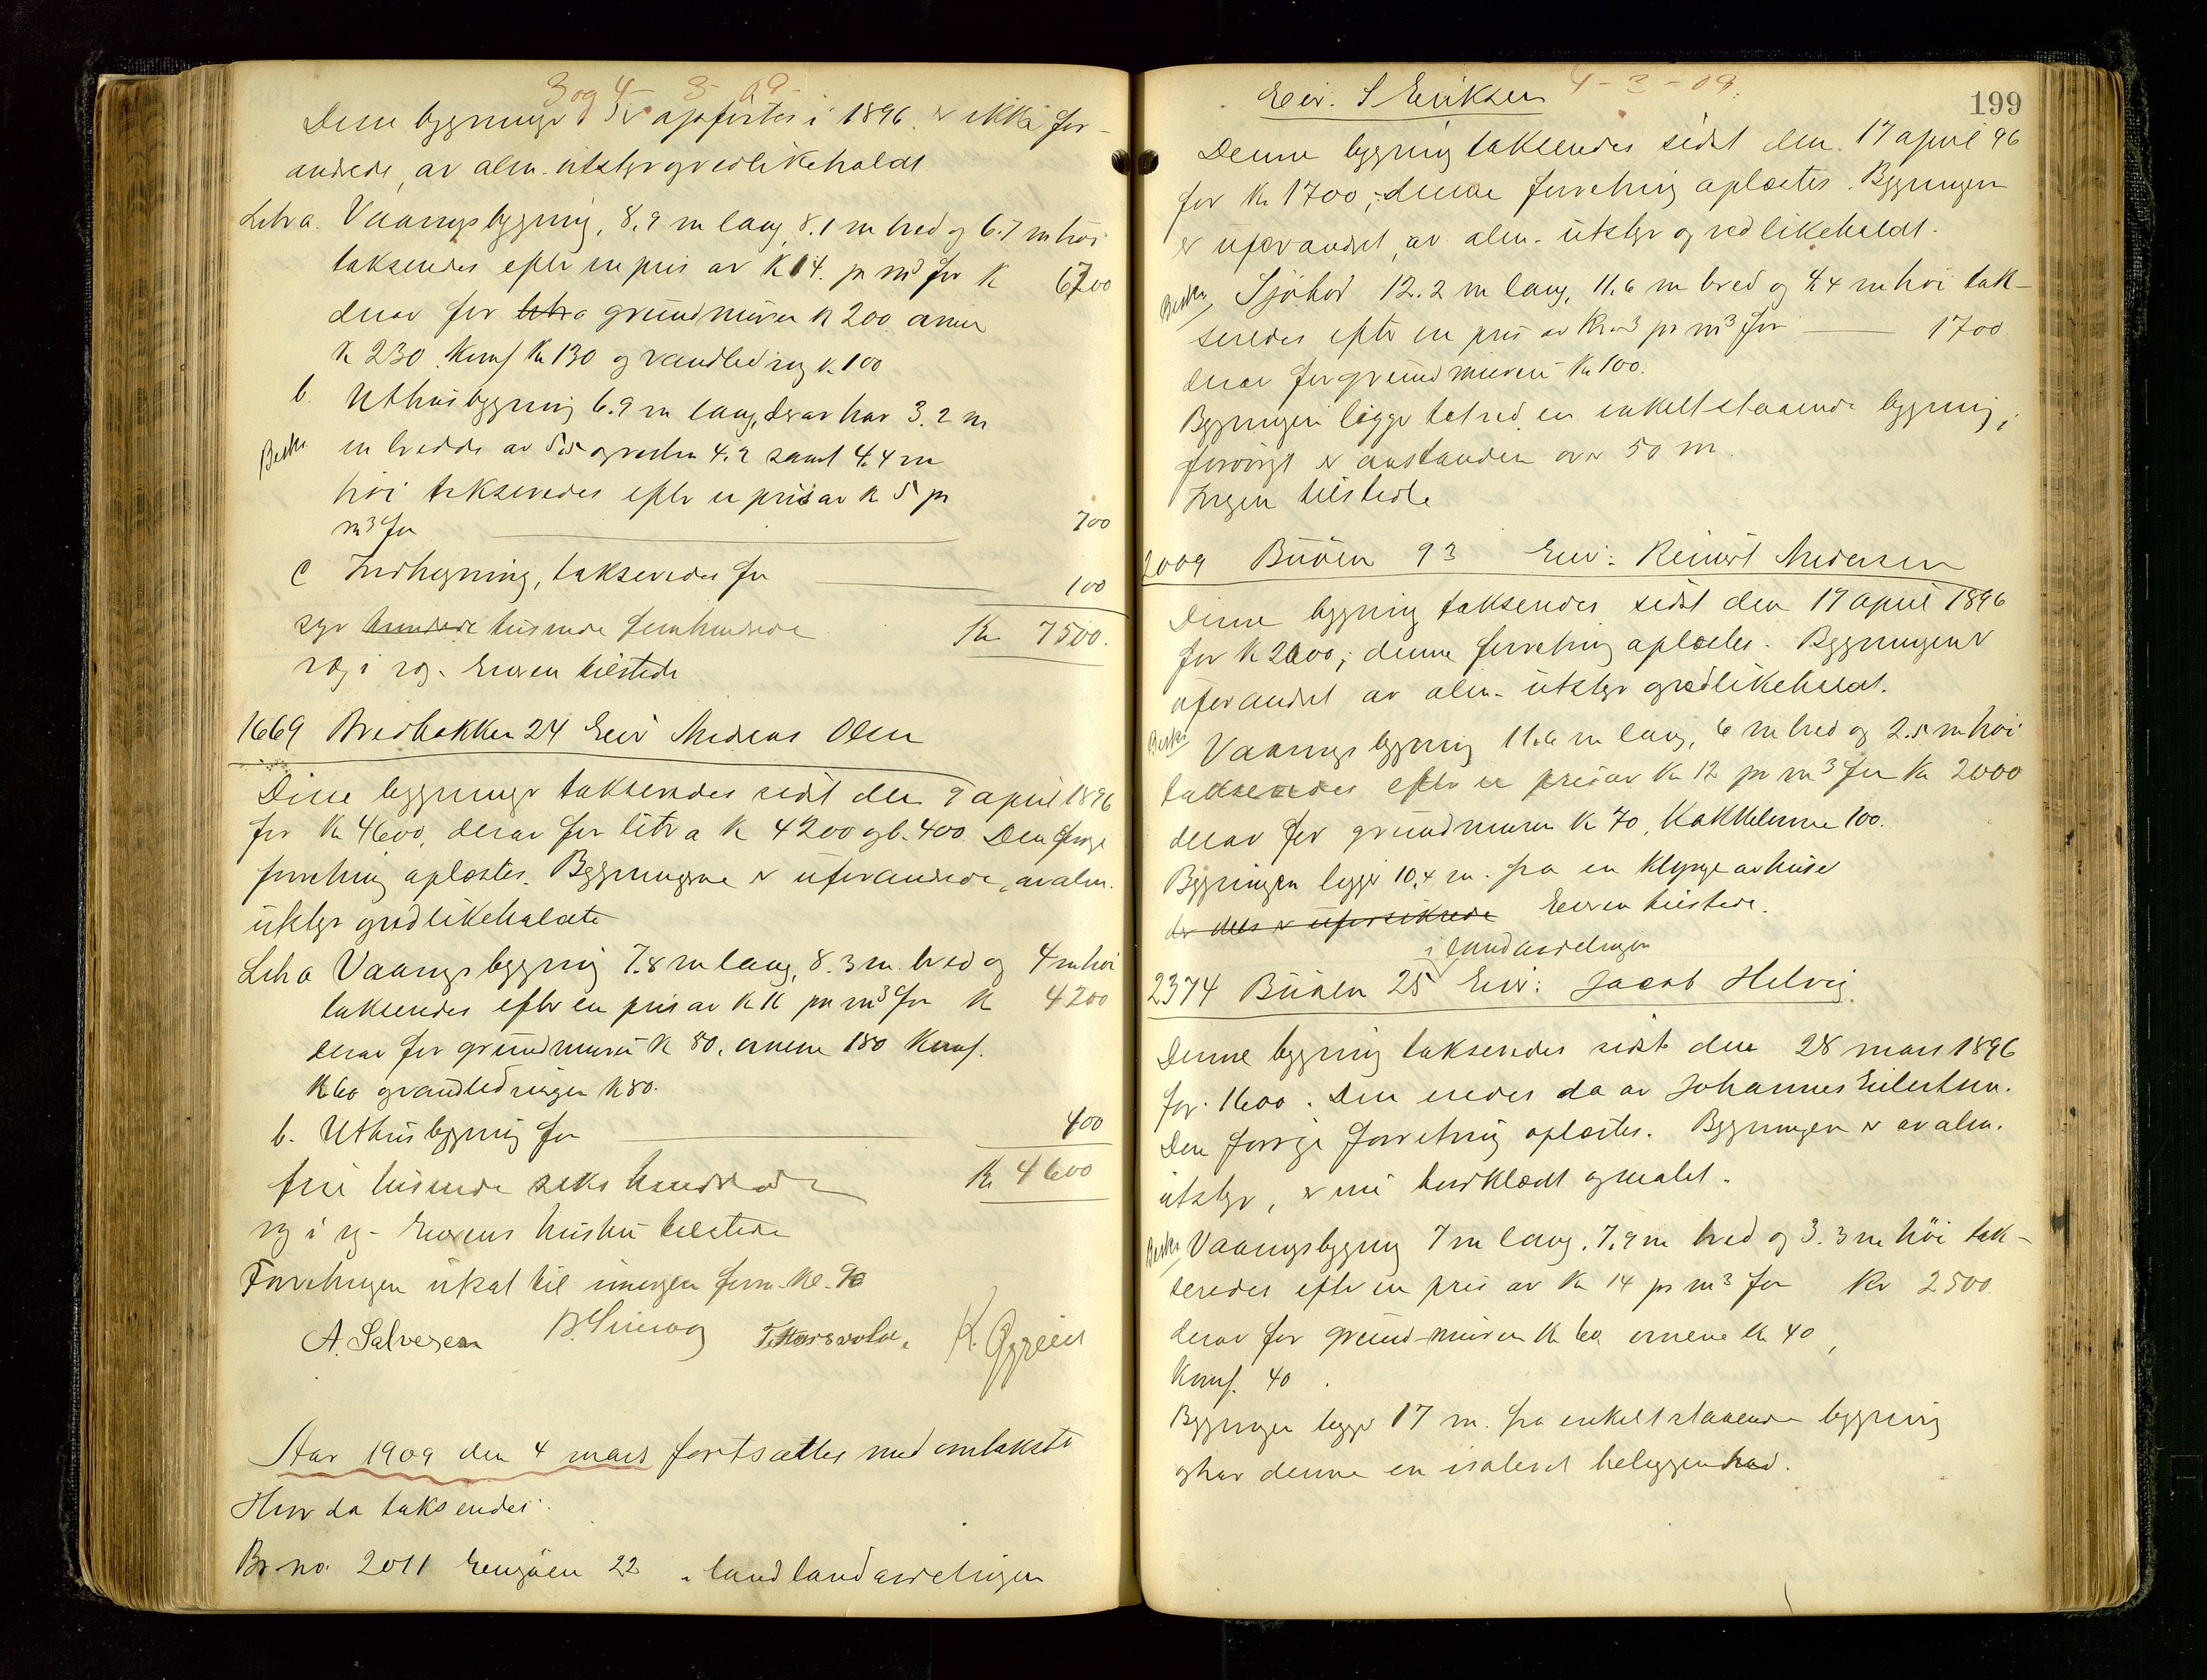 3 og 4 - 3 - 09 -
Disse bygninger er opførtes i 1896. er ikke for-
andrede, av alm. utstyr og vedlikeholdt
Litra a. Vaaningsbygning, 8.9 m lang, 8.1 m bred og 6.7 m høi
takseredes efter en pris av K 14. pr m3 for K 6700
derav for litra grundmuren K 200 ovnene
K 230 Komf. Kr 130 og vandledning K. 100
b. Uthusbygning 6.9 m lang, derav har 3.2 m
Beskr. en bredde av 5.5 og resten 4.2 samt 4.4 m
høi takseredes efter en pris av K 5 pr
m3 for 700
c Indhegning, takseredes for 100
syv hundrede tusinde femhundrede Kr 7500.
veg i veg. Eieren tilstede
1669 Bredbakken 24 Eier Andreas Olsen
Disse bygninger takseredes sidst den 9 april 1896
for Kr 4600, derav for litr a K 4200 og b. 400. Den forrige
forretning oplæstes. Bygningerne er uforandrede, av alm.
utstyr og vedlikeholdte
Litra a Vaaningsbygning 7.8 m lang, 8.3 m. bred og 4 m høi
takseredes efter en pris av K 16 pr m3 for K 4200
derav for grundmuren K 80, ovnene 180 Komf.
K 60 og vandledningen K 80.
b. Uthusbygning for 400
fire tusinde seks hundrede Kr 4600
veg i veg - Eierens hustru tilstede
Forretningen utsat til imorgen form. kl. 9
A. Salvesen
Aar 1909 den 4 mars fortsattes med omtakster
Hvor da takseredes:
Br. no. 2011 Engøen 22 i landavdelingen
Eier. S Eriksen 4 - 3 - 09.
199
Denne bygning takseredes sidst den 17 april 96
for Kr 1700; denne forretning oplæstes. Bygningen
er uforandret, av alm. utstyr og vedlikeholdt.
Beskr. Sjøbod 12.2 m lang, 11.6 m bred og 4.4 m høi tak-
seredes efter en pris av Kr 3 pr m3 for 1700.
derav for grundmuren Kr 100.
Bygningen ligger tet ved en enkeltstaaende bygning;
forøvrigt er avstanden over 50 m.
Ingen tilstede
2009 Buøen 93 Eier: Reinert Andersen
Denne bygning takseredes sidst den 17 april 1896
for K 2000; denne forretning oplæstes. Bygningen er
uforandret av alm. utstyr og vedlikeholdt.
Beskr. Vaaningsbygning 11.6 m lang, 6 m bred og 2.5 m høi
takseredes efter en pris av Kr 12 pr m3 for Kr 2000
derav for grundmuren K 70, Kakkelovnene 100.
Bygningen ligger 10.4 m. fra en klynge av huse
der dels er uforsikrede Eieren tilstede.
i landavdelingen
2374 Buøen 25 Eier: Jacob Helvig
Denne bygning takseredes sidst den 28 mars 1896
for 1600. Den eiedes da av Johannes Eilertsen.
Den forrige forretning oplæstes. Bygningen er av alm.
utstyr, er nu bordklædt og malet.
Beskr. Vaaningsbygning 7 m lang, 7.9 m bred og 3.3 m høi tak-
seredes efter en pris av Kr 14 pr m3 for Kr 2500.
derav for grundmuren K 60, ovnene K 40,
Komf. 40.
Bygningen ligger 17 m. fra enkeltstaaende bygning
og har denne en isoleret beliggenhed.